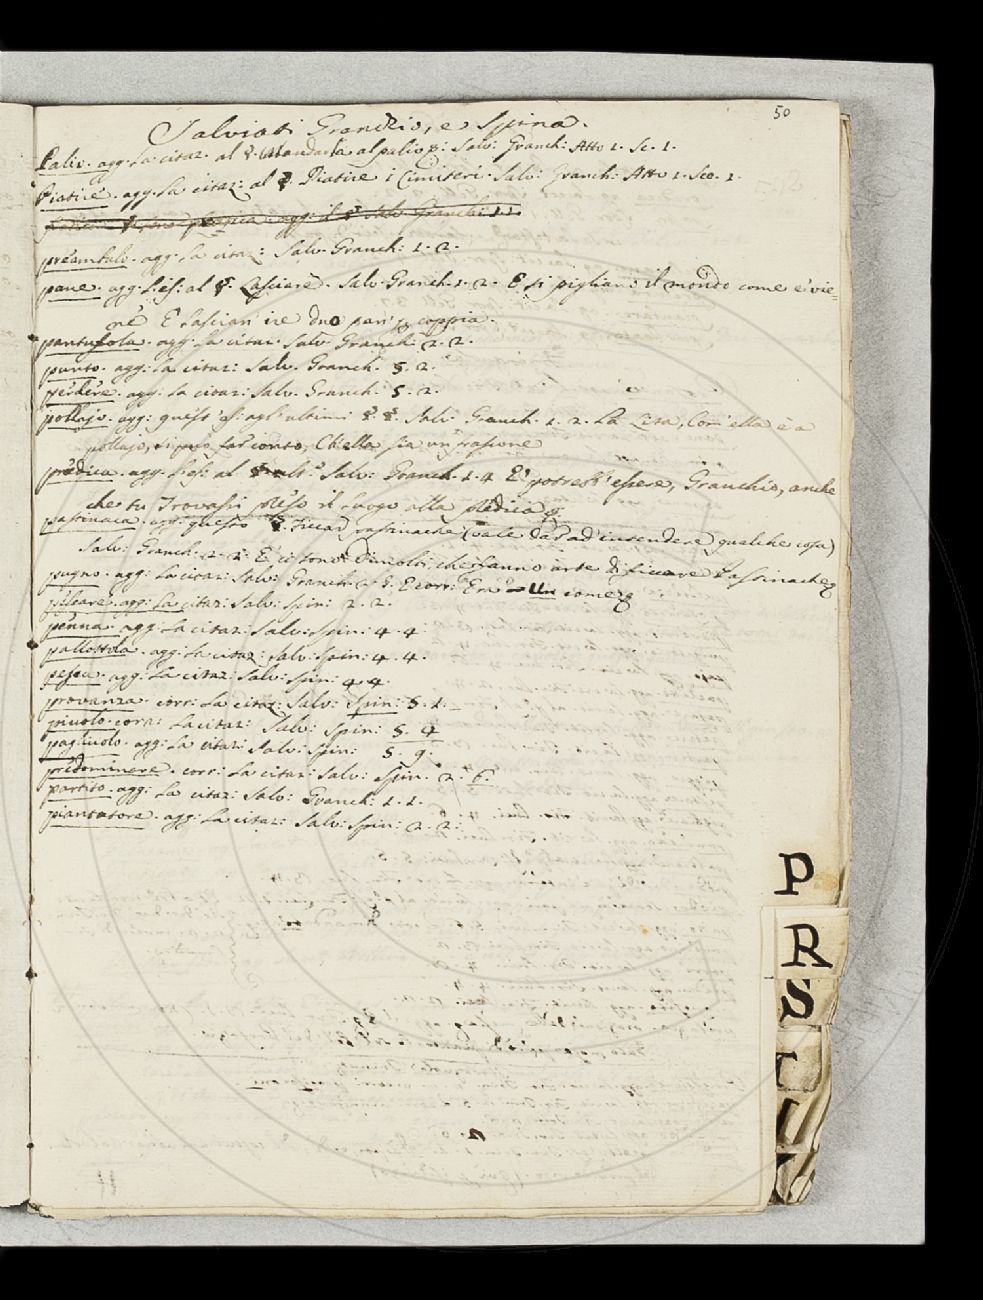 50
Salviati Granchio, e Spina.
Palio. agg. la citaz. al §. Mandarla al palio Salv: Granch: Atto 1. Sc. 1.
Piatire. agg. la citaz: al §. Piatire i Cimiteri. Salv: Granch: Atto 1. Sce. 1.
preambulo. agg. la citaz: Salv. Granch: 1. 2.
pane. agg. l'es: al §. Lasciare. Salv. Granch. 1. 2. E si pigliano il mondo come e' vie=
ne E lascian' ire duo pan' coppia.
pantufola. agg. la citaz. Salv. Granch. 2. 2.
punto. agg: la citaz: Salv. Granch. 5. 2.
perdere. agg. la citaz: Salv. Granch: 5. 2.
pollajo. agg: quest' es: agl'ultimi §. §. Salv: Granch. 1. 2. La Lisa, Com' ella è a
pollajo, si può far conto, Ch'ella sia un
predica. agg. l'es: al Salv: Granch. 1. 4 E' potrebb' essere, Granchio, anche
che tu trovassi preso il luogo alla predica
pastinaca. agg: questo §. Ficcar pastinache (vale dar ad intendere qualche cosa)
Salv: Granch. 2. 2. E ci sono di molti che fanno arte di ficcare Pastinache
pugno. agg: la citaz: Salv: Granch: 2. 5. E corr: Era = Un come
pileare. agg: la citaz: Salv: Spin: 2. 2.
penna. agg: la citaz: Salv: Spin: 4. 4
pallottola. agg: la citaz: Salv: Spin: 4. 4.
pesca. agg: la citaz: Salv: Spin: 4. 4.
provanza. corr: la citaz: Salv: Spin: 5. 1.
piuolo. corr: la citaz: Salv: Spin: 5. 4
pagliuolo. agg: la citaz: Salv: Spin: 5. 9.
predominare. corr: la citaz: Salv: Spin. 2. 6.
partito. agg: la citaz: Salv: Granch: 1. 1.
piantatore. agg: la citaz: Salv: Spin: 2. 2.
P
R
S
T